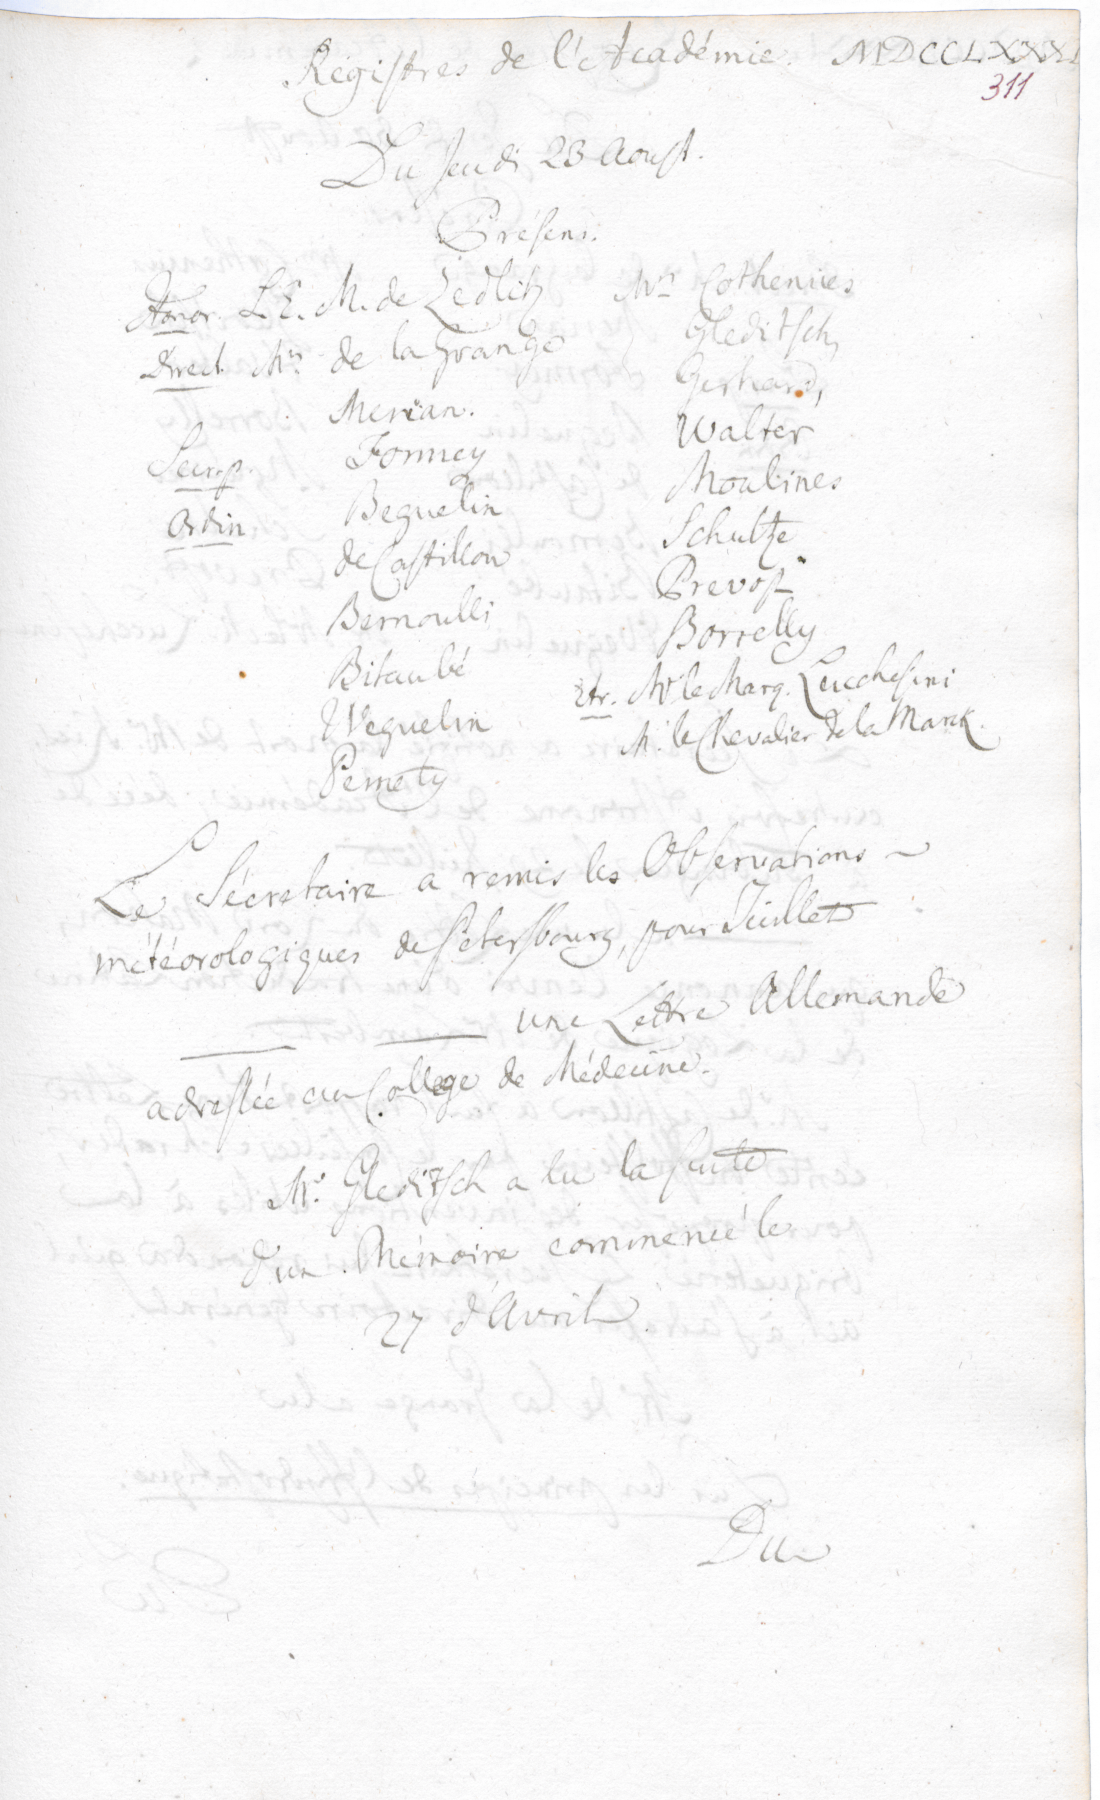 Régistres de l'Académie. MDCCLXXXI
311
Du Jeudi 23 Aoust.
Présens.
Honor. S.E. M. de Zedlitz
Direct. Mrs de la Grange
Merian.
Secr. p. Formey
Ordin Beguelin
de Castillon
Bernoulli
Bitaubé
Weguelin
Pernety
Mrs Cothenius
Gleditsch,
Gerhard,
Walter
Moulines
Schultze
Prevost
Borrelly
Etr. Mr le Marq. Lucchesini
M. le Chevalier de la Marck.
Le Sécretaire a remis les Observations
météorologiques de Petersbourg, pour Juillet
une Lettre Allemande
adressée au College de Médecine.
Mr. Gleditsch a lu la suite
d'un Mémoire commencé le
27 d'Avril.
Du